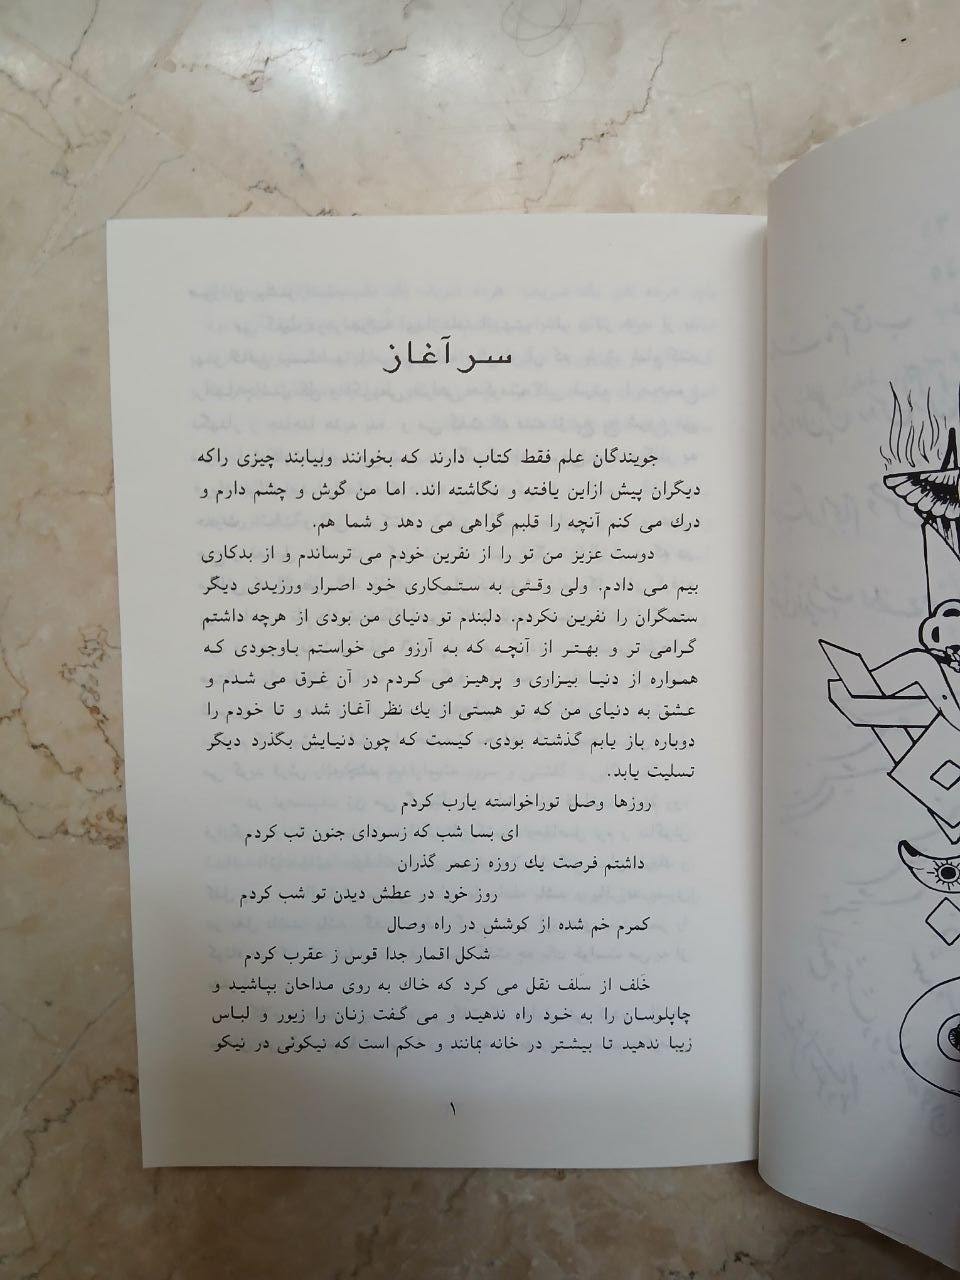 سرآغاز
جویندگان علم فقط کتاب دارند که بخوانند وبیابند چیزی راکه
دیگران پیش ازاین یافته و نگاشته اند. اما من گوش و چشم دارم و
درك می کنم آنچه را قلبم گواهی می دهد و شما هم.
دوست عزیز من تو را از نفرین خودم می ترساندم و از بدکاری
بیم می دادم. ولی وقتی به ستمکاری خود اصرار ورزیدی دیگر
ستمگران را نفرین نکردم. دلبندم تو دنیای من بودی از هرچه داشتم
گرامی تر و بهتر از آنچه که به آرزو می خواستم باوجودی که
همواره از دنیا بیزاری و پرهیز می کردم در آن غرق می شدم و
عشق به دنیای من که تو هستی از یك نظر آغاز شد و تا خودم را
دوباره باز یابم گذشته بودی. کیست که چون دنیایش بگذرد دیگر
تسلیت یابد.
روزها وصل توراخواسته یارب کردم
ای بسا شب که زسودای جنون تب کردم
داشتم فرصت یك روزه زعمر گذران
روز خود در عطش دیدن تو شب کردم
کمرم خم شده از کوشش در راه وصال
شکل اقمار جدا قوس ز عقرب کردم
خَلف از سَلف نقل می کرد که خاك به روی مداحان بپاشید و
چاپلوسان را به خود راه ندهید و می گفت زنان را زیور و لباس
زیبا ندهید تا بیشتر در خانه بمانند و حکم است که نیکوئی در نیکو
۱